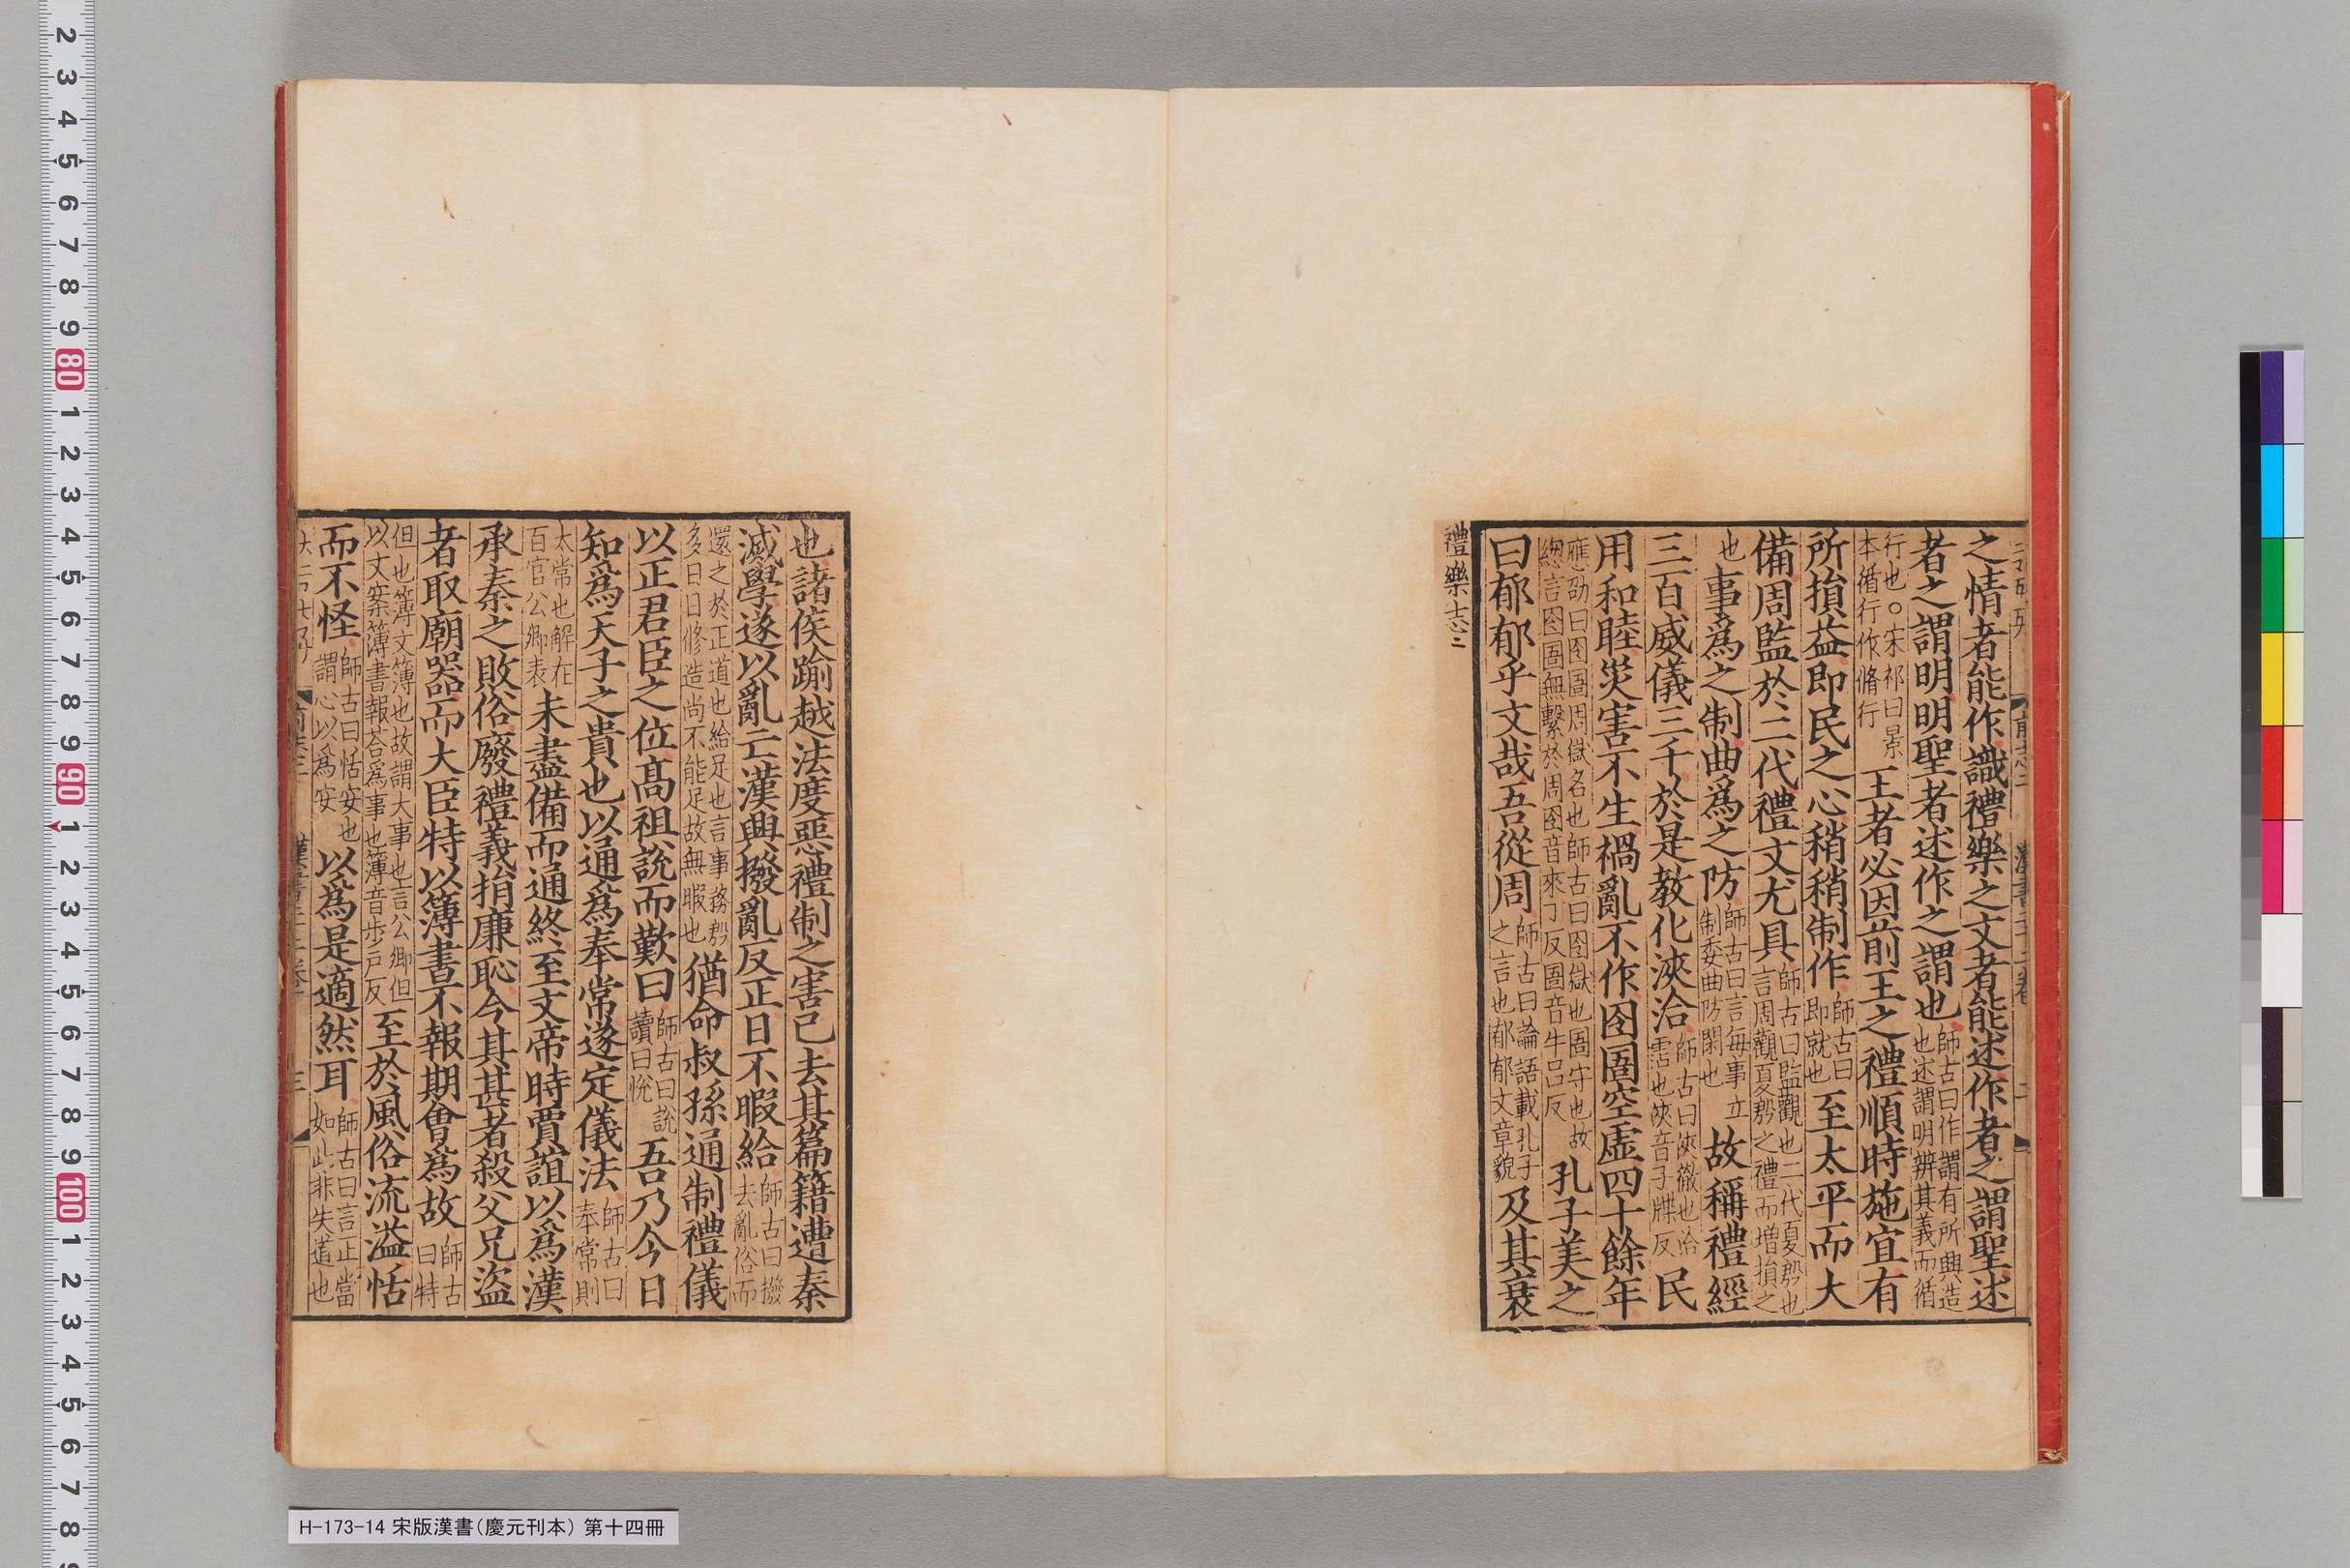 之情者能作識禮樂之文者能述作者之謂聖述
者之謂明明聖者述作之謂也師古曰作謂有所興造也述謂明辨其義而循
行也○宋祁曰景本循行作脩行王者必因前王之禮順時施宜有
所損益即民之心稍稍制作師古曰即就也至太平而大
備周監於二代禮文尤具師古曰監觀也二代夏殷也言周觀夏殷之禮而增損之
也事爲之制曲爲之防師古曰言每事立制委曲防閑也故稱禮經
三百威儀三千於是教化浹洽師古曰浹徹也洽霑也浹音子牒反民
用和睦災害不生禍亂不作囹圄空虛四十餘年
應劭曰囹圄周獄名也師古曰囹獄也圄守也故總言囹圄無繫於周囹音來丁反圄音牛呂反孔子美之
曰郁郁乎文哉吾從周師古曰論語載孔子之言也郁郁文章貌及其衰
禮樂志二
也諸侯踰越法度惡禮制之害己去其篇籍遭秦
滅學遂以亂亡漢興撥亂反正日不暇給師古曰撥去亂俗而
還之於正道也給足也言事務殷多日日修造尚不能足故無暇也猶命叔孫通制禮儀
以正君臣之位高祖說而歎曰師古曰說讀曰悅吾乃今日
知爲天子之貴也以通爲奉常遂定儀法師古曰奉常則
太常也解在百官公卿表未盡備而通終至文帝時賈誼以爲漢
承秦之敗俗廢禮義捐廉恥今其甚者殺父兄盜
者取廟器而大臣特以簿書不報期會爲故師古曰特
但也簿文簿也故謂大事也言公卿但以文案簿書報荅爲事也簿音步戶反至於風俗流溢恬
而不怪師古曰恬安也謂心以爲安以爲是適然耳師古曰言正當如此非失道也
H-173-14 宋版漢書(慶元刊本) 第十四冊